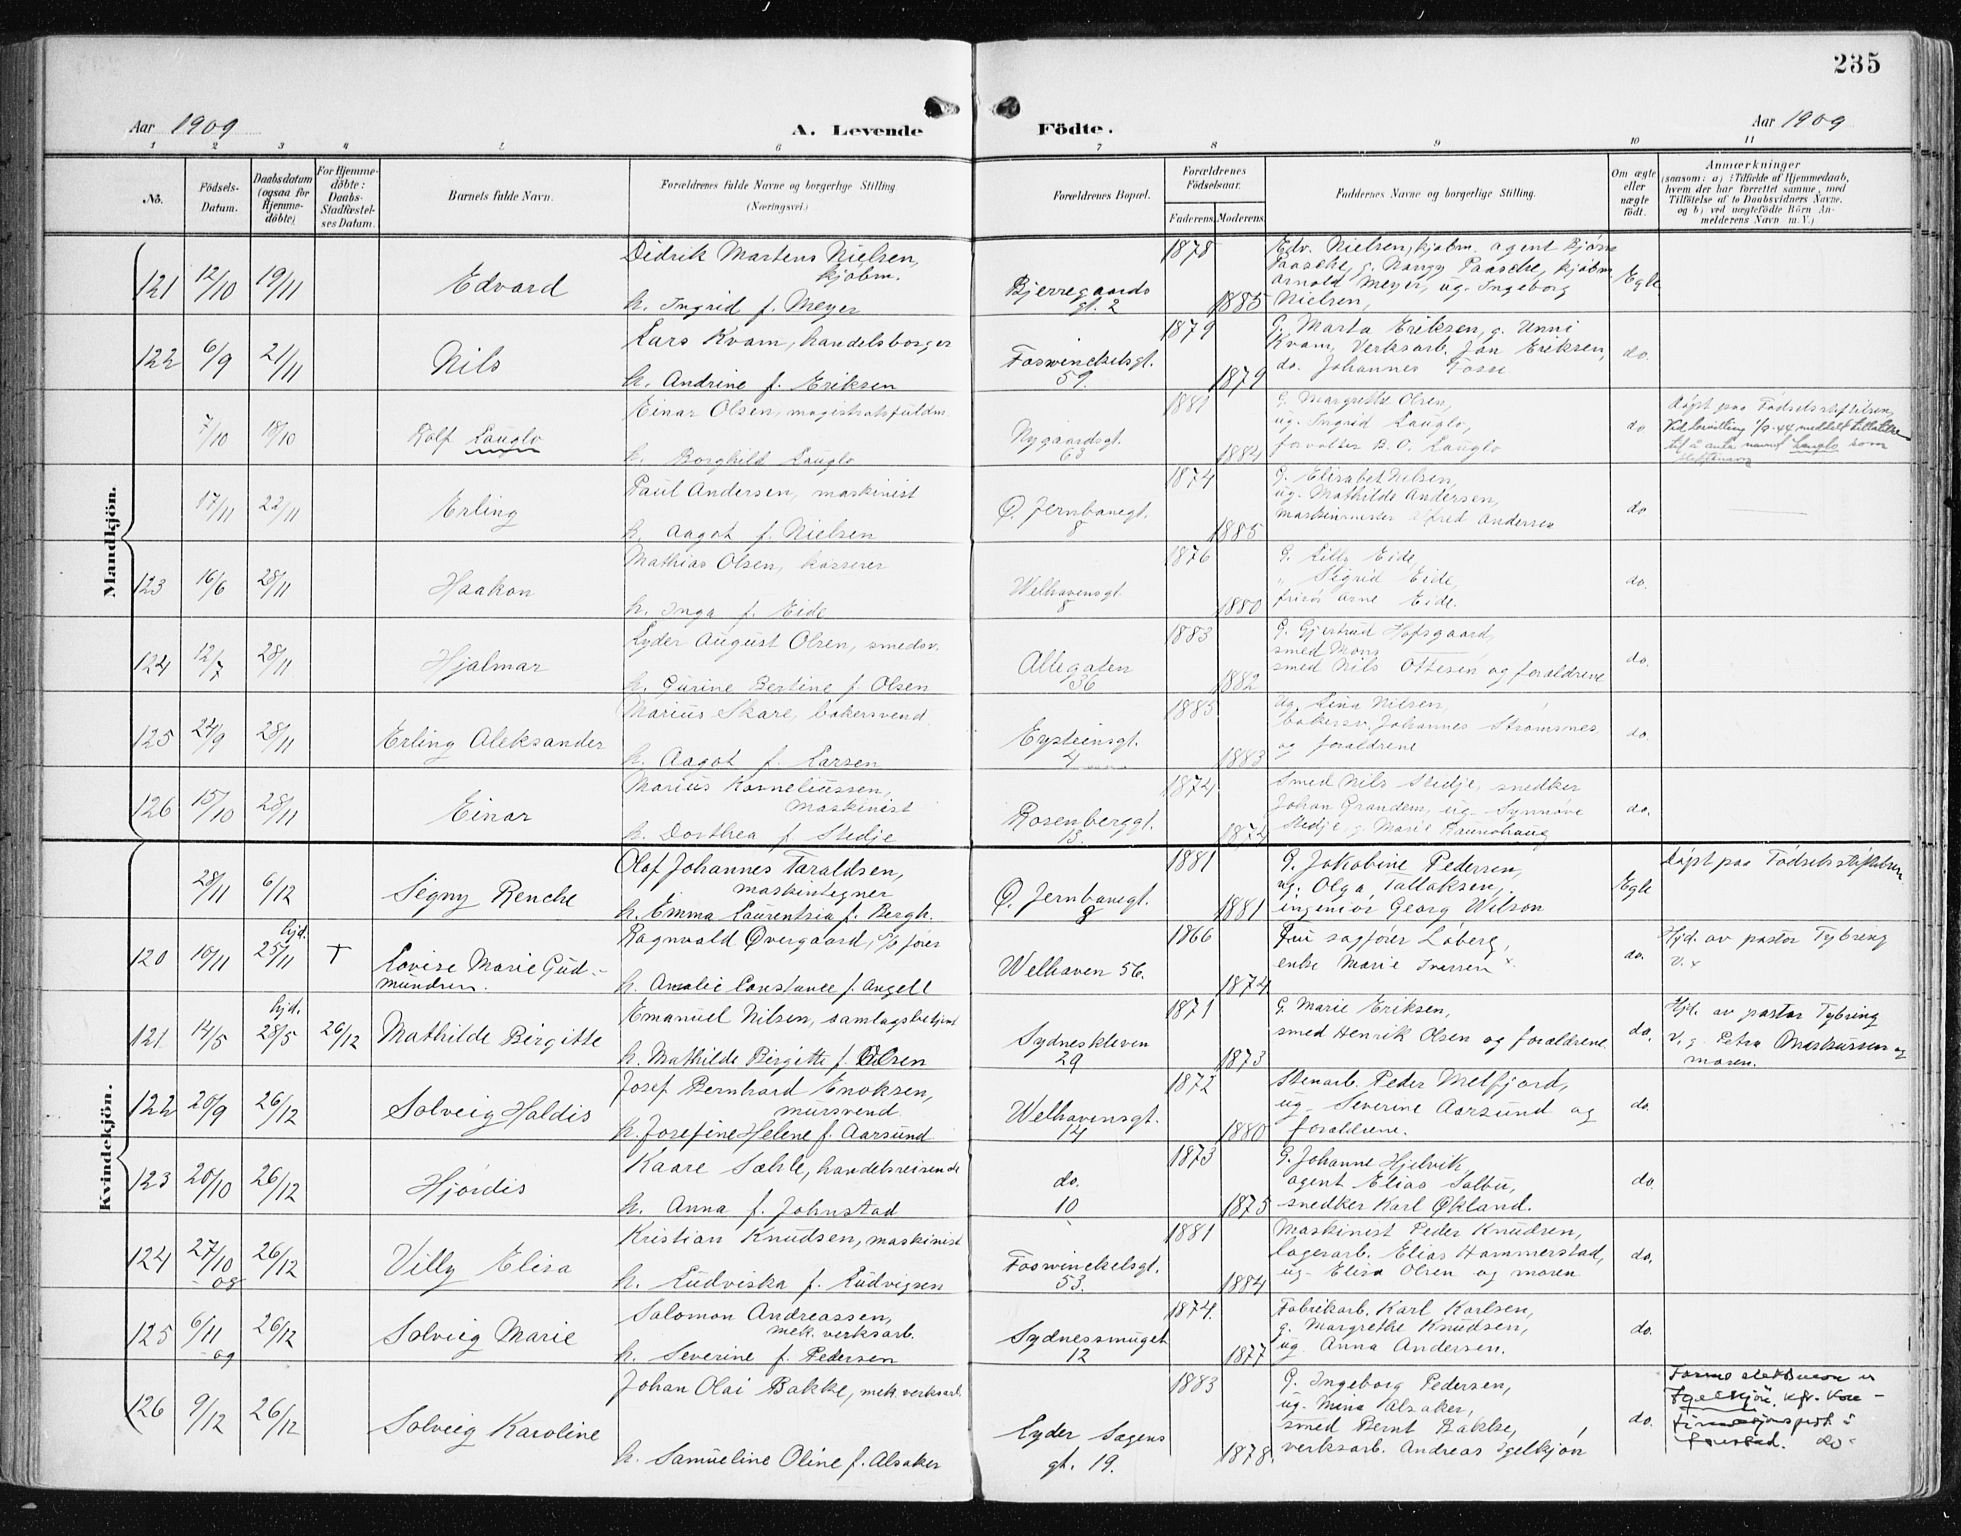 235
Aar 1909
A. Levende
Födte.
Aar 1909
1 2 3 4 5 6 7 8 9 10 11
No.
Födsels-
Datum.
Daabsdatum
(ogsaa for
Hjemme-
döbte)
For Hjemme-
döbte:
Daabs-
Stadfæstel-
ses Datum.
Barnets fulde Navn.
Forældrenes fulde Navne og borgerlige Stilling.
(Næringsvei.)
Forældrenes Bopæl.
Forældrenes
Födselsaar.
Faderens. Moderens.
Faddernes Navne og borgerlige Stilling.
Om ægte
eller
uægte
født.
Anmærkninger
(saasom: a) i Tilfælde af Hjemmedaab,
hvem der har forrettet samme, med
Tilföielse af to Daabsvidners Navne,
og b) ved uægtefödte Börn An-
melderens Navn m. V.)
Mandkjön.
121 12/10 19/11 Edvard
Didrik Martens Nielsen,
kjøbm.
h. Ingrid f. Meyer
Bjerregaards
gt. 2
1878
1885
Edv. Nielsen, kjøbm. agent Bjørn
Paasche, g. Nanny Paasche, kjøbm
Arnold Meyer, ug. Ingeborg
Nielsen,
Egte
122 6/9 21/11 Nils
Lars Kvam, handelsborger
h. Andrine f. Eriksen
Foswinckelsgt.
59.
1879
1879
G. Marta Eriksen, g. Unni
Kvam, Verksarb. Jan Eriksen,
do. Johannes Fosse
do.
7/10 18/10 Rolf Lauglo
Einar Olsen, magistratsfuldm.
h. Borghild Lauglo
Nygaardsgt.
63
1881
1884
G. Margrethe Olsen,
ug. Ingrid Lauglo,
forvalter B. O. Lauglo
do
Døpt paa Fødselsstiftelsen,
Ved bevilling 1/9-44 meddelt tillatelse
til å anta navnet Lauglo som
slektsnavn
17/11 22/11 Erling
Paul Andersen, maskinist
h. Aagot f. Nielsen
Ø. Jernbanegt.
8
1874
1885
G. Elisabet Nilsen,
ug. Mathilde Andersen,
maskinmester Alfred Andersen
do
123 16/6 28/11 Haakon
Mathias Olsen, kasserer
h. Inga f. Eide
Welhavensgt.
8
1876
1880
G. Lilly Eide,
" Sigrid Eide,
frisør Arne Eide.
do.
124 12/7 28/11 Hjalmar
Lyder August Olsen, smedsv.
h. Gurine Bertine f. Olsen
Allegaten
36
1883
1882
G. Gjertrud Hofsgaard,
smed Mons
smed Nils Ottesen og forældrene
do.
125 24/9 28/11 Erling Aleksander
Marius Skare, bakersvend.
h. Aagot f. Larsen
Eysteinsgt.
4
1885
1883
Ug. Lina Nilsen,
bakersv. Johannes Strømsnes
og forældrene
do.
126 15/10 28/11 Einar
Marius Korneliussen,
maskinist
h. Dorthea f. Stedje
Rosenberggt.
13.
1874
1874
Smed Nils Stedje, snedker
Johan Grandem, ug. Synnøve
Stedje, g. Marie Raunehaug
do.
Kvindekjön.
28/11 6/12 Signy Renche
Olaf Johannes Taraldsen,
maskintegner
h. Emma Laurentzia f. Bergh.
Ø. Jernbanegt.
8
1881
1881
G. Jakobine Pedersen,
ug. Olga Tallaksen,
ingeniør Georg Wilson
Egte
Døpt paa Fødselsstiftelsen.
120 10/11 hjd. 25/11 T Lovise Marie Gud-
mundsen.
Ragnvald Øvergaard, s/s fører
h. Amalie Constance f. Angell
Welhaven 56.
1866
1874
Fru sagfører Løberg,
enke Marie Iversen x.
do.
Hjd. av pastor Tybring
V. x
121 14/5 hjd. 28/5 26/12 Mathilde Birgitte
Emanuel Nilsen, samlagsbetjent
h. Mathilde Birgitte f. Olsen
Sydneskleven
29
1871
1873
G. Marie Eriksen,
smed Henrik Olsen og forældrene.
do.
Hjd. av pastor Tybring
V. g. Petra Markussen og
moren.
122 20/9 26/12 Solveig Haldis
Josef Bernhard Enoksen,
mursvend.
h. Josefine Helene f. Aarsund
Welhavensgt.
14
1872
1880
Stenarb. Peder Melfjord,
ug. Severine Aarsund og
forældrene.
do.
123 20/10 26/12 Hjørdis
Kaare Sæhle, handelsreisende
h. Anna f. Johnstad
do.
10
1873
1875
G. Johanne Hjelvik,
agent Elias Salbu,
snedker Karl Økland.
do.
124 27/10 26/12 Villy Elisa
08
Kristian Knudsen, maskinist
h. Ludviska f. Ludvigsen
Foswinckelsgt.
53.
1881
1884
Maskinist Peder Knudsen,
lagerarb. Elias Hammerstad,
ug. Elisa Olsen og moren
do.
125 6/11 26/12 Solveig Marie
09
Salomon Andreassen,
mek. verksarb.
h. Severine f. Pedersen
Sydnessmuget
12
1874.
1877
Fabrikarb. Karl Karlsen,
g. Margrethe Knudsen,
ug. Anna Andersen.
do.
126 9/12 26/12 Solveig Karoline
Johan Olai Bakke, mek verksarb.
h. Samueline Oline f. Alsaker
Lyder Sagens
gt. 19.
1883
1878.
G. Ingeborg Pedersen,
ug. Mina Alsaker,
smed Bernt Bakke,
verksarb. Andreas Igelkjøn
do.